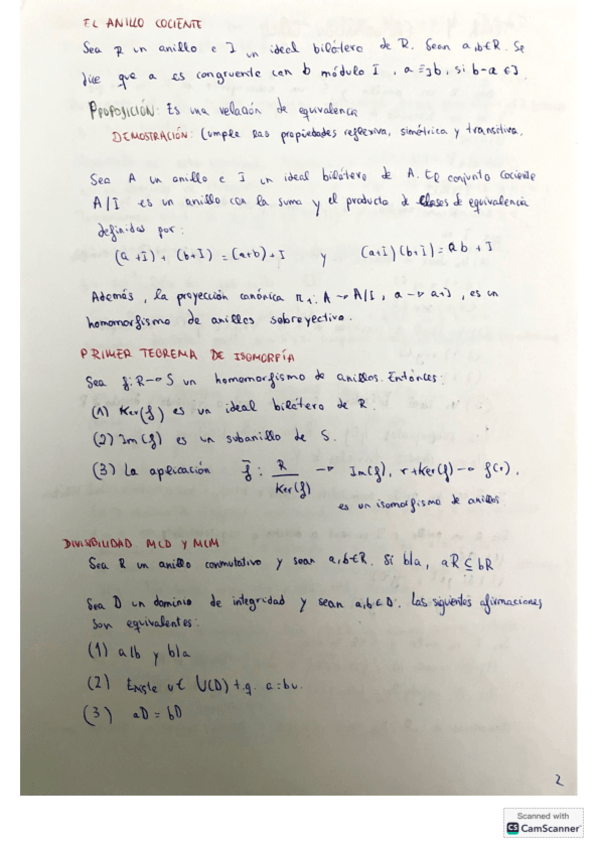 EL ANILLO COCIENTE
Sea R un anillo e I un ideal bilátero de R. Sean a,b∈R. Se
dice que a es congruente con b módulo I, a ≡_I b, si b-a ∈ I
PROPOSICIÓN: Es una relación de equivalencia
DEMOSTRACIÓN: Cumple las propiedades reflexiva, simétrica y transitiva.
Sea A un anillo e I un ideal bilátero de A. El conjunto cociente
A/I es un anillo con la suma y el producto de clases de equivalencia
definidas por:
(a+I) + (b+I) = (a+b)+I y (a+I)(b+I) = ab + I
Además, la proyección canónica π_1: A → A/I, a → a+I, es un
homomorfismo de anillos sobreyectivo.
PRIMER TEOREMA DE ISOMORFÍA
Sea f: R → S un homomorfismo de anillos. Entonces:
(1) Ker(f) es un ideal bilátero de R.
(2) Im(f) es un subanillo de S.
(3) La aplicación f̄ : R/Ker(f) → Im(f), r+Ker(f) → f(r),
es un isomorfismo de anillos.
DIVISIBILIDAD MCD y MCM
Sea R un anillo conmutativo y sean a,b∈R. Si b|a, aR ⊆ bR
Sea D un dominio de integridad y sean a,b∈D. Las siguientes afirmaciones
son equivalentes:
(1) a|b y b|a
(2) Existe u∈ U(D) t.q. a=bu.
(3) aD = bD
2
Scanned with
CS CamScanner